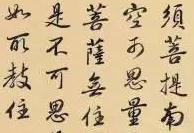 須菩提南
空可思量
菩薩無住
是不可思
如所教住